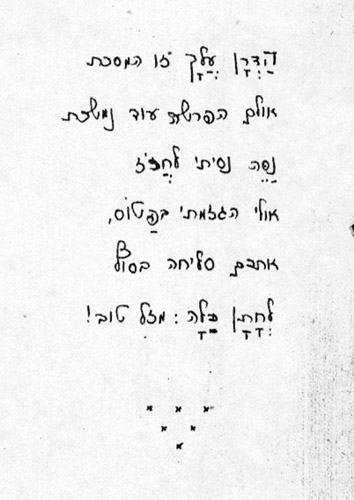 הדרן עלך זו המסכת
אולם הפרשה עוד נמשכת
נסה נסיתי לחרז
אולי הגזמתי בפטוס,
אתכם סליחה
לחתן כלה: מזל טוב!